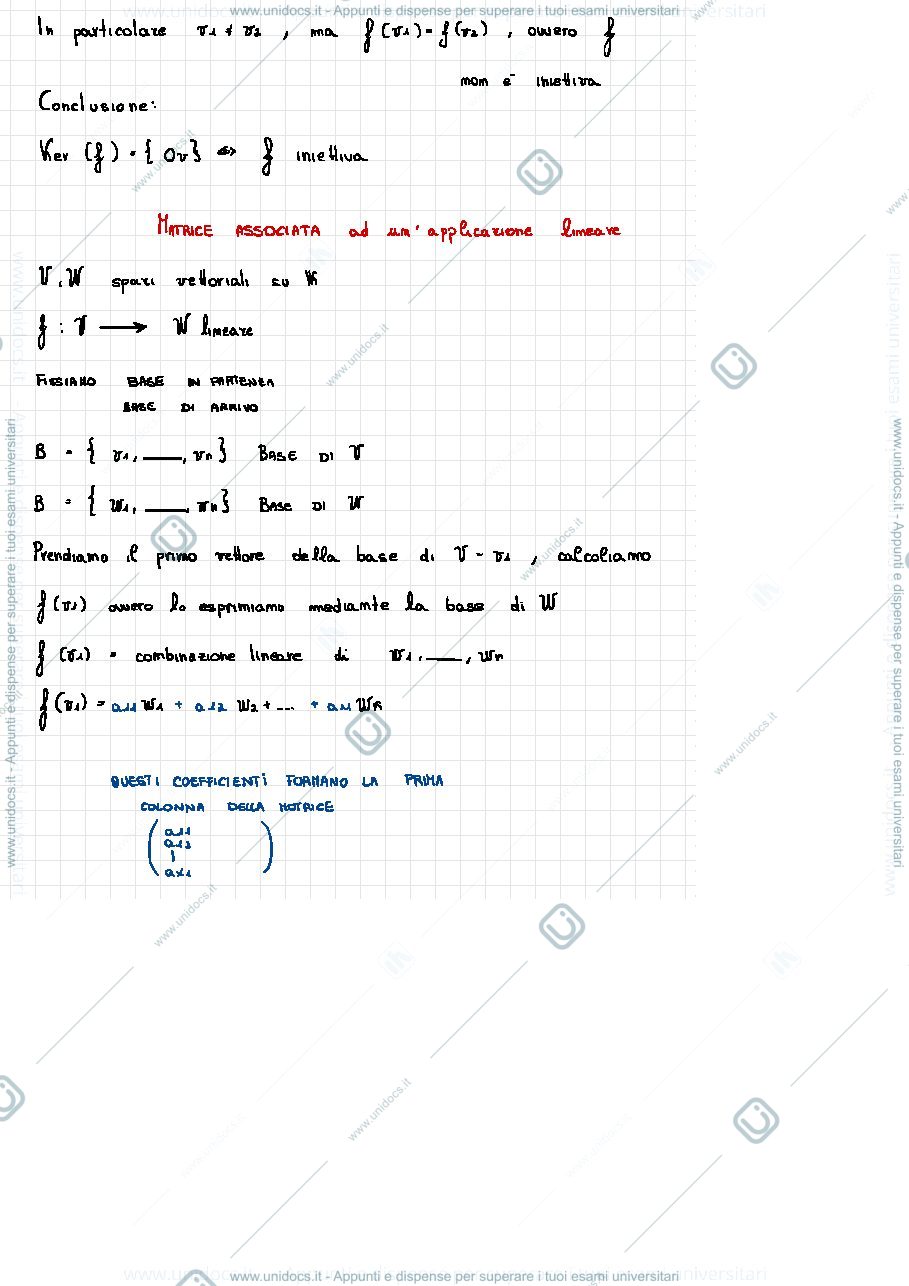 www.unidocs.it - Appunti e dispense per superare i tuoi esami universitari
In particolare v1 ≠ v2 , ma f(v1) = f(v2) , ovvero f
non è iniettiva
Conclusione:
Ker (f) = { 0v } <=> f iniettiva
MATRICE ASSOCIATA ad un' applicazione lineare
V, W spazi vettoriali su K
f : V → W lineare
FISSIAMO BASE IN PARTENZA
BASE DI ARRIVO
B = { v1, ___, vn } BASE DI V
B = { w1, ___, wn } BASE DI W
Prendiamo il primo vettore della base di V - v1 , calcoliamo
f(v1) ovvero lo esprimiamo mediante la base di W
f (v1) = combinazione lineare di w1, ___, wn
f(v1) = a11 w1 + a12 w2 + ... + a11 wk
QUESTI COEFFICIENTI FORMANO LA PRIMA
COLONNA DELLA MATRICE
( a11
a12
|
ak1 )
www.unidocs.it - Appunti e dispense per superare i tuoi esami universitari
www.unidocs.it - Appunti e dispense per superare i tuoi esami universitari
www.unidocs.it
www.unidocs.it
www.unidocs.it
www.unidocs.it
www.unidocs.it
www.unidocs.it
www.unidocs.it - Appunti e dispense per superare i tuoi esami universitari